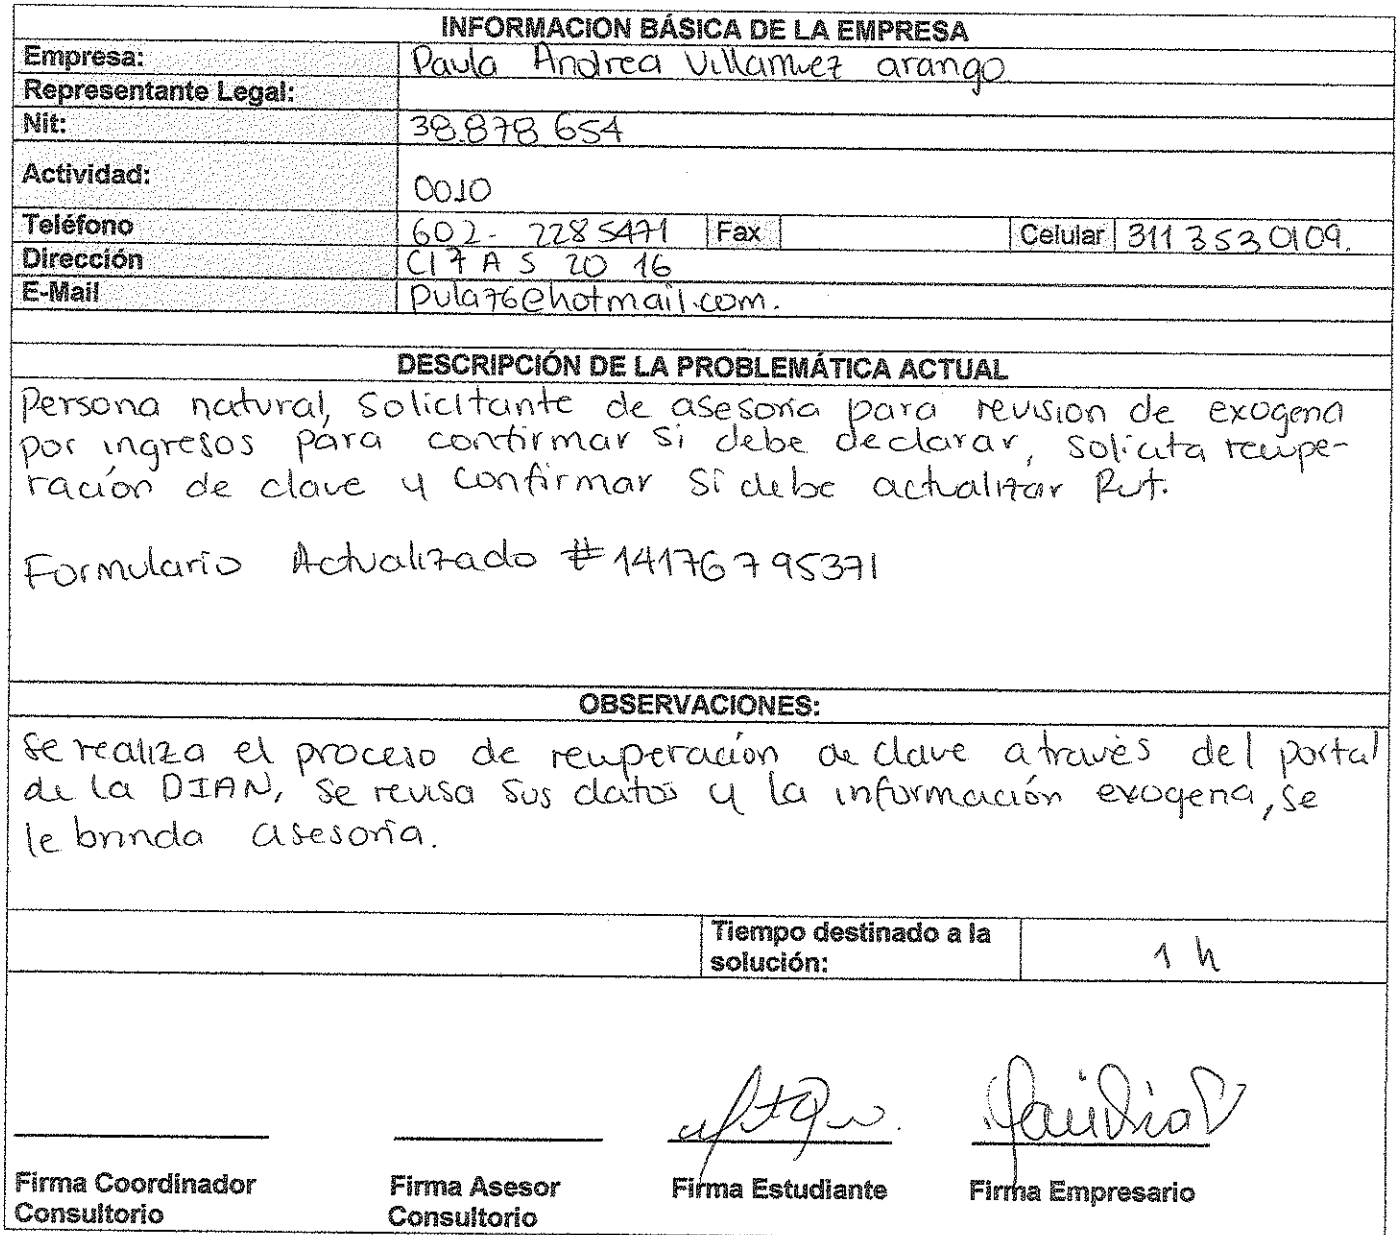 INFORMACION BÁSICA DE LA EMPRESA
Empresa: Paula Andrea Villamuez arango
Representante Legal:
Nit: 38.878 654
Actividad: 0010
Teléfono 602- 2285471 Fax Celular 311 353 0109.
Dirección Cl 7 A S 20 16
E-Mail pula76@hotmail.com.
DESCRIPCIÓN DE LA PROBLEMÁTICA ACTUAL
Persona natural, Solicitante de asesoria para revision de exogena
por ingresos para confirmar si debe declarar, solicita recupe-
ración de clave y confirmar si debe actualizar Rut.
Formulario Actualizado #14176795371
OBSERVACIONES:
Se realiza el proceso de recuperación de clave a través del portal
de la DIAN, Se revisa sus datos y la información exogena, se
le brinda asesoría.
Tiempo destinado a la
solución: 1 h
Firma Coordinador
Consultorio
Firma Asesor
Consultorio
Firma Estudiante
Firma Empresario